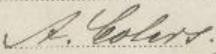 A. Colers.